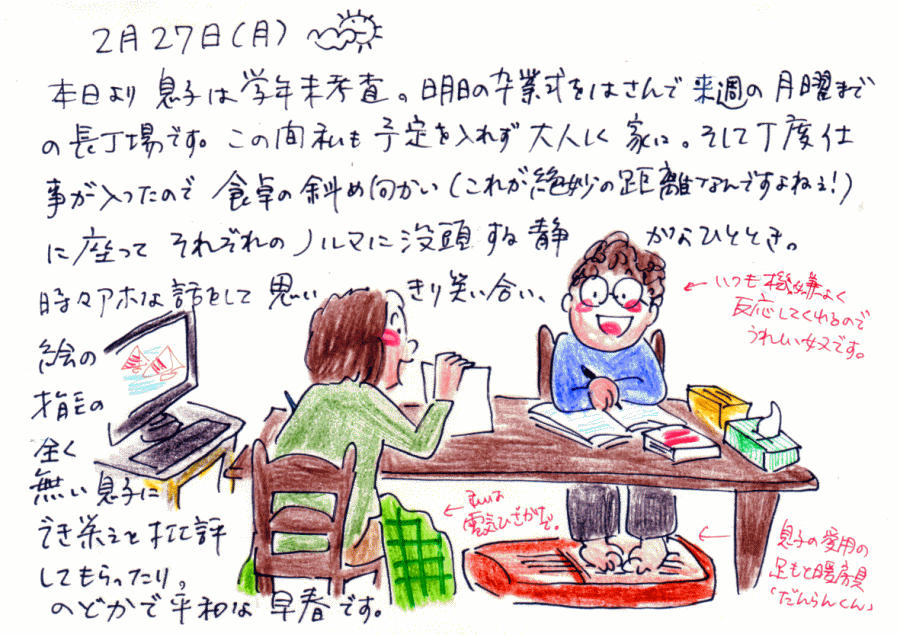 2月27日(月)
本日より 息子は学年末考査。明日の卒業式をはさんで 来週の月曜まで
の長丁場です。この間私も予定を入れず大人しく家に。そして丁度仕
事が入ったので 食卓の斜め向かい(これが絶妙の距離なんですよねぇ!)
に座って それぞれのノルマに没頭する静かなひととき。
時々アホな話をして 思いきり笑い合い、
絵の
才能の
全く
無い息子に
でき栄えを批評
してもらったり。
のどかで平和な早春です。
←いつも機嫌よく
反応してくれるので
うれしい父です。
←私は
電気ひざかけ。
←息子の愛用の
足もと暖房具
「だんらんくん」